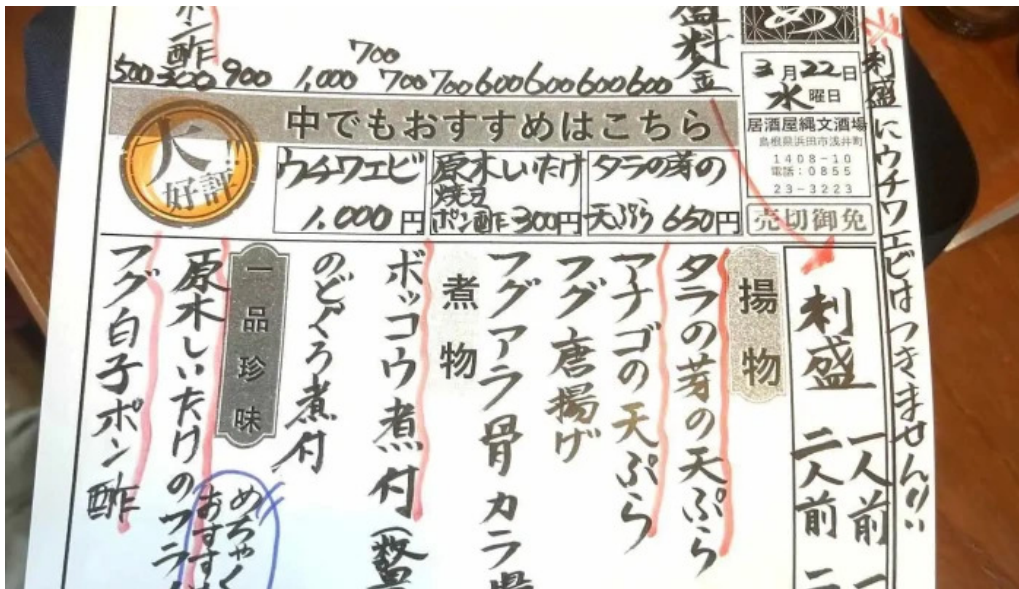 ポン酢
料金
500 300 900 1,000 700 700 700 600 600 600 600
3月22日
水曜日
居酒屋縄文酒場
島根県浜田市浅井町
1408-10
電話:0855
23-3223
売切御免
刺盛にウチワエビはつきません!!
大好評!!
中でもおすすめはこちら
ウチワエビ
1.000円
原木しいたけ
焼き
ポン酢 300円
タラの芽の
天ぷら 650円
刺盛
一人前
二人前
揚物
タラの芽の天ぷら
アナゴの天ぷら
フグ唐揚げ
フグアラ骨カラ
煮物
ボッコウ煮付
のどぐろ煮付
一品珍味
原木しいたけのフラ
めちゃく
おすす
フグ白子ポン酢